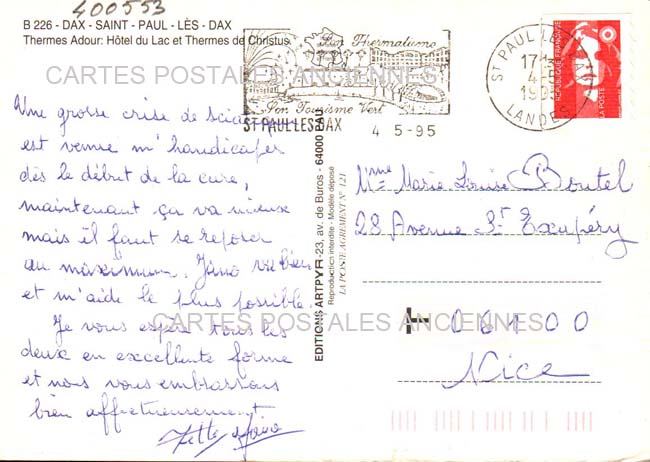 400553
B 226 - DAX - SAINT - PAUL - LÈS - DAX
Thermes Adour: Hôtel du Lac et Thermes de Christus
CARTES POSTALES ANCIENNES
Une grosse crise de sciatique
est venue m'handicaper
dès le début de la cure,
maintenant ça va mieux
mais il faut se reposer
au maximum. Jino va bien
et m'aide le plus possible.
Je vous espère tous les
deux en excellente forme
et nous vous embrassons
bien affectueusement.
EDITIONS ARTPYR - 23, av. de Buros - 64000 PAU
Reproduction interdite - Modèle déposé
LA POSTE AGREMENT N° 121
Son Thermalisme
Son Tourisme Vert
ST PAUL LES DAX
4 5-95
ST PAUL LES DAX
17H
4-5
LANDES
REPUBLIQUE FRANÇAISE
LA POSTE
Mme Marie-Louise Boutel
28 Avenue St Exupéry
06100
Nice
CARTES POSTALES ANCIENNES